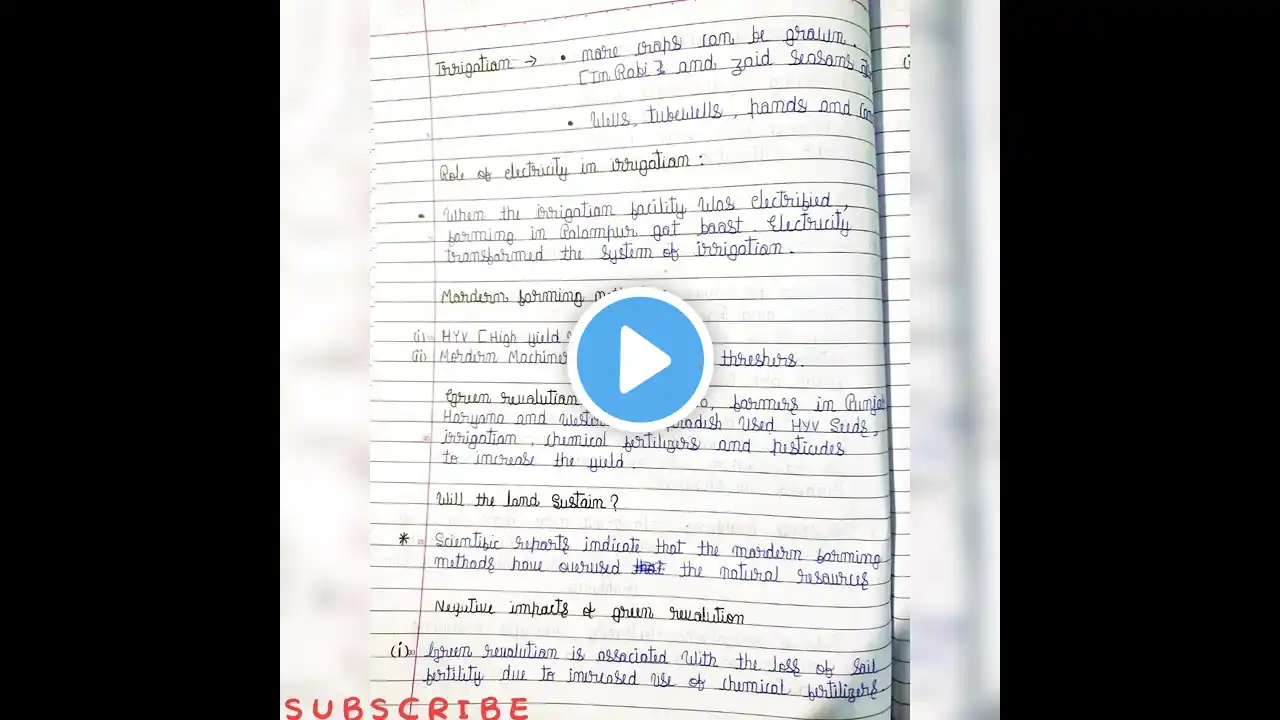 Irrigation → • more crops can be grown.
[In Rabi & and zaid seasons
• Wells, tubewells, pands and
Role of electricity in irrigation :
• When the irrigation facility was electrified,
farming in Palampur got boost. Electricity
transformed the system of irrigation.
Mordern farming
(i) HYV [High yield
(ii) Mordern threshers.
Green revolution farmers in Punjab
Haryana and used HYV Seeds,
irrigation, chemical fertilizers and pesticides
to increase the yield.
Will the land Sustain?
* Scientific reports indicate that the mordern farming
methods have overused that the natural resources
Negative impacts of green revolution
(i) Green revolution is associated with the loss of soil
fertility due to increased use of chemical fertilizers.
SUBSCRIBE